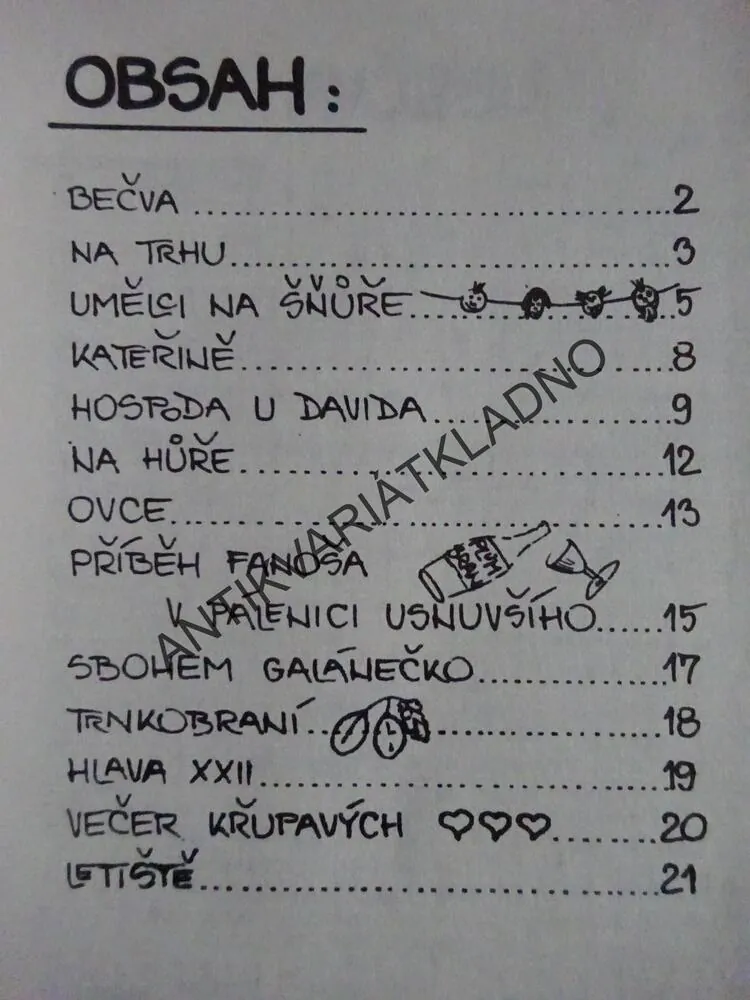 OBSAH:
BEČVA ........................................ 2
NA TRHU........................................ 3
UMĚLCI NA ŠŇŮŘE........................................5
KATEŘINĚ........................................8
HOSPODA U DAVIDA........................................9
NA HŮŘE........................................12
OVCE........................................13
PŘÍBĚH FANOŠA
V PÁLENICI USNUVŠÍHO......15
SBOHEM GALÁNEČKO....................17
TRNKOBRANÍ........................18
HLAVA XXII........................................19
VEČER KŘUPAVÝCH ♡♡♡........20
LETIŠTĚ........................................21
ANTIKVARIÁTKLADNO